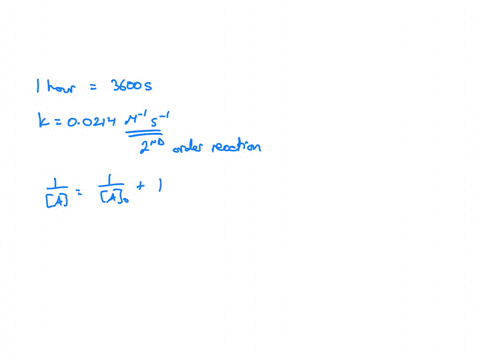 1 hour = 3600s
k = 0.0214 M⁻¹ s⁻¹
2ᴺᴰ order reaction
1/[A] = 1/[A]₀ + 1